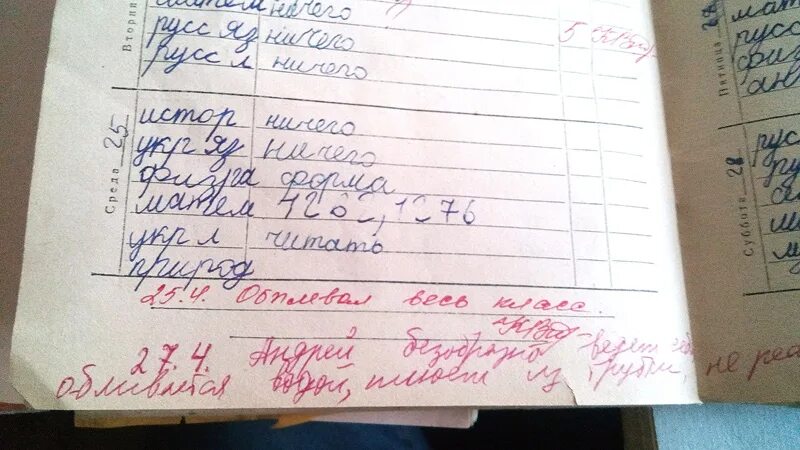 матем ничего
русс яз ничего 5
русс л ничего
Среда 25
истор ничего
укр яз ничего
физра форма
матем 1262, 1276
укр л читать
природ
25.4. Обплевал весь класс.
27.4. Андрей безобразно ведет себя
обливается водой, плюёт из трубки, не
Пятница
мат
русс
физ
Суббота 28
русс